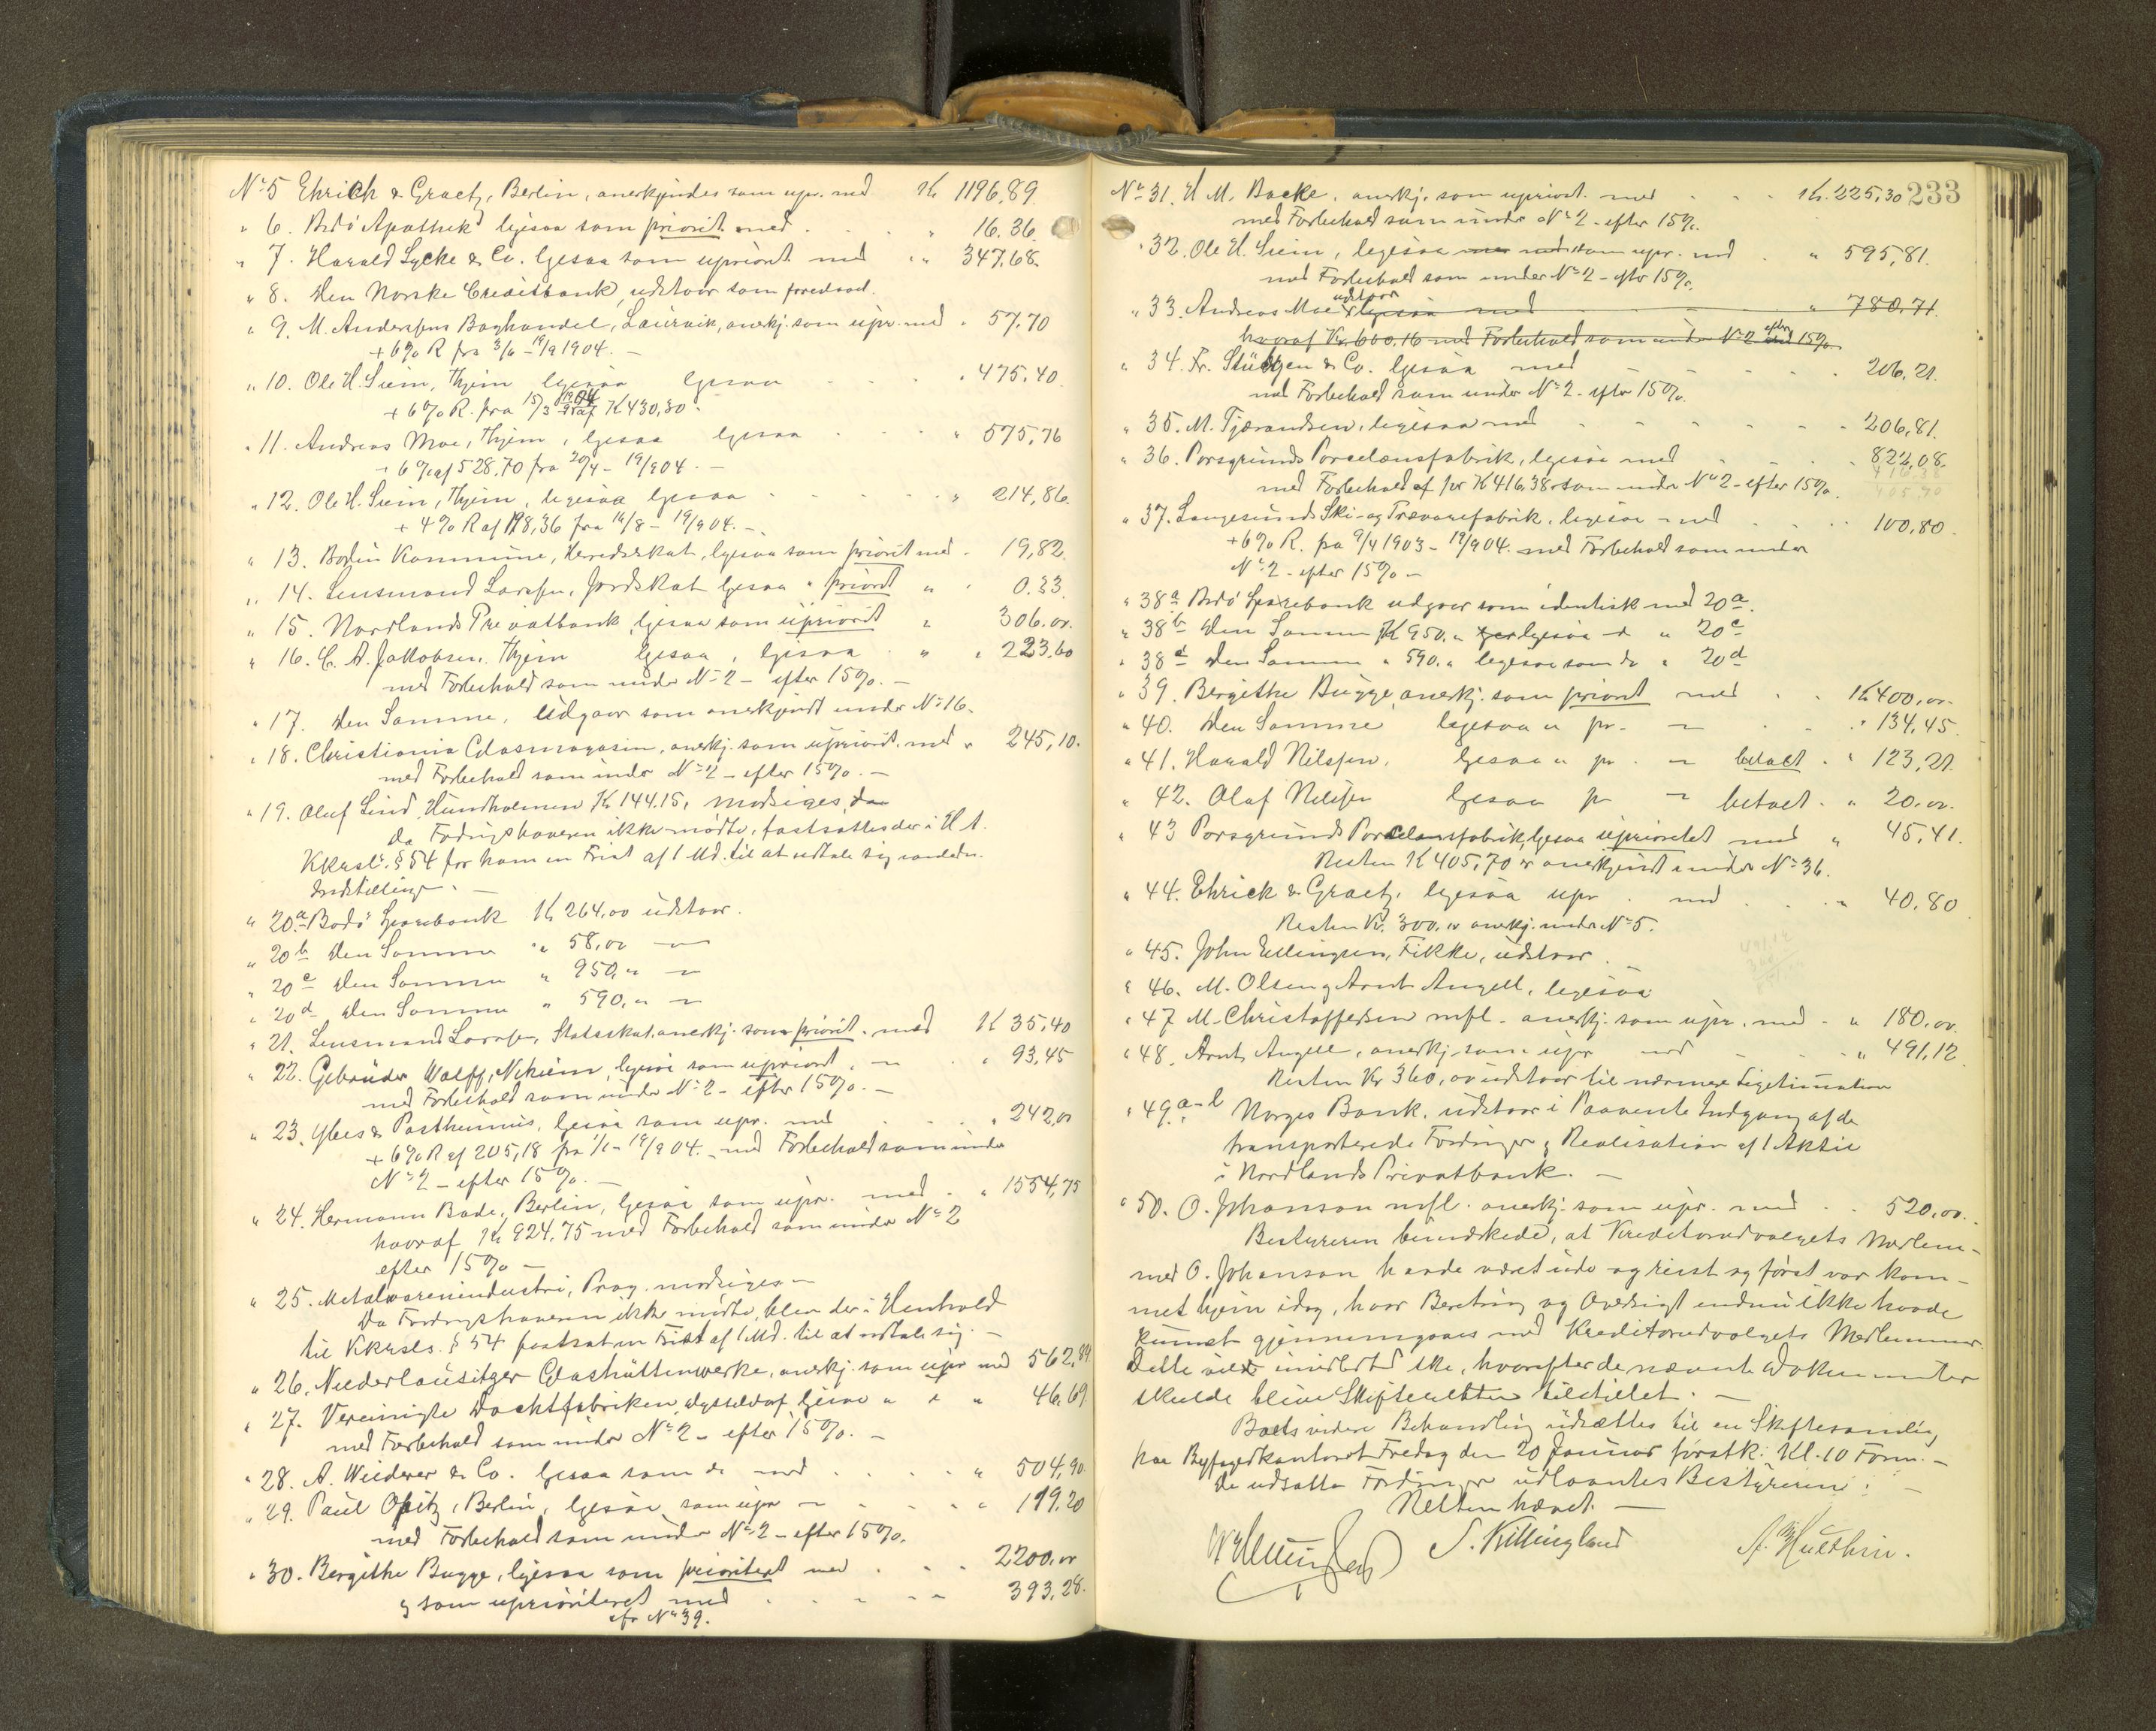 No 5 Ehrich & Graetz, Berlin, anerkjendes som upr. med Kr 1196,89.
" 6. Bodö Apothek ligesaa som priorit. med . . . " 16.36.
" 7. Harald Lycke & Co. ligesaa som upriorit. med " " 347.68.
" 8. Den Norske Creditbank, udstaar som
" 9. M. Anderssens Boghandel, Laurvik, anerkj. som upr. med " 57,70
+ 6% R fra 3/6 - 19/9 1904. -
" 10. Ole H. Siem, Thjem ligesaa ligesaa . . . " 475,40.
+ 6% R. fra 15/3 1904 af K 430,30.
" 11. Andreas Moe, Thjem, ligesaa ligesaa . . . " 575,76
- 6% af 528.70 fra 20/4 - 19/9 04. -
" 12. Ole H. Siem, Thjem, ligesaa ligesaa . . . " 214,86.
+ 4% R af 198,36 fra 16/8 - 19/9 04. -
" 13. Bodin Kommune, Herredsskat, ligesaa som priorit med . 19,82.
" 14. Lensmand Larssen, Jordskat ligesaa " priorit " . 0.33.
" 15. Nordlands Privatbank, ligesaa som upriorit " 306.00.
" 16. C. A. Jakobsen. Thjem ligesaa, ligesaa . " " 223.60
med Forbehold som under No 2 - efter 15%. -
" 17. Den Samme, udgaar som anerkjendt under No 16.
" 18. Christiania Glasmagasin, anerkj. som upriorit. med " 245,10.
med Forbehold som under No 2 - efter 15%. -
" 19. Oluf Lind, Hundholmen K 144.15, modsiges, da
da Fordringshaveren ikke mødte, fastsattes der i H. t.
Kkrsl. § 54 for ham en Frist af 1 Md. til at udtale sig
Indstilling. -
" 20a Bodö Sparebank Kr 264,00 udstaar.
" 20b Den Samme " 58,00 -
" 20c Den Samme " 950, " -
" 20d Den Samme " 590, " -
" 21. Lensmand Larssen, Statsskat, anerkj. som priorit. med K 35,40
" 22. Gebrüder Wolff, Neheim, ligesaa som upriorit. - . " 93,45
med Forbehold som under No 2 - efter 15%. -
" 23. Ybes & Posthumus, ligesaa som upr. med . . . " 242,00
+ 6% R af 205,18 fra 1/1 - 19/9 04. - med Forbehold som under
No 2 - efter 15%. -
" 24. Hermann Bade, Berlin, ligesaa som upr. med . " 1554,75
hvoraf Kr 924.75 med Forbehold som under No 2
efter 15% -
" 25. Metalvarenindustri, Prag, modsiges -
Da Fordringshaveren ikke mødte, blev der i Henhold
til Kkrsls. § 54 fastsat en Frist af 1 Md. til at udtale sig. -
" 26. Niederlausitzer Glashüttenwerke, anerkj. som upr med 562,89
" 27. Vereinigte Dochtfabriken, Dysseldorf, ligesaa " " " 46.69
med Forbehold som under No 2 - efter 15%. -
" 28. A. Wiederer & Co. ligesaa som do med . . . " 504,90.
" 29. Paul Opitz, Berlin, ligesaa som upr - . . . " 119.20
med Forbehold som under No 2 - efter 15%.
" 30. Bergithe Bugge, ligesaa som prioriteret med . . . 2200,00
og som uprioriteret med . . . 393,28.
cfr No 39.
233
No 31. H. M. Backe, anerkj. som upriorit. med . . . Kr. 225,30
med Forbehold som under No 2 - efter 15%.
" 32. Ole H. Siem, ligesaa som upr. med . " 595,81.
med Forbehold som under No 2 - efter 15%.
" 33. Andreas Moe udstaar ligesaa med " 780,71.
hvoraf Kr. 600.16 med Forbehold som under No 2 efter 15%.
" 34. Fr. Stübgen & Co. ligesaa med . . . 206,21.
med Forbehold som under No 2 - efter 15%.
" 35. M. Tjærandsen, ligesaa med . . . 206,81.
" 36. Porsgrunds Porcelænsfabrik, ligesaa med . . . 822,08.
416,38
med Forbehold af for K 416,38 som under No 2 - efter 15%.
405,70
" 37. Langesunds Ski- og Trævarefabrik, ligesaa med . . . 100,80.
+ 6% R. fra 9/4 1903 - 19/9 04. med Forbehold som under
No 2 - efter 15% -
" 38a Bodö Sparebank udgaar som identisk med 20a.
" 38b Den Samme K 950. " ligesaa d " 20c
" 38d Den Samme " 590. " ligesaa som do " 20d
" 39. Bergithe Bugge, anerkj. som priorit med . . Kr 400,00.
" 40. Den Samme ligesaa " pr. - . . " 134,45.
" 41. Harald Nilssen, ligesaa " pr. - betalt . " 123,21.
" 42. Olaf Nilssen ligesaa pr - betalt . " 20.00.
" 43 Porsgrunds Porcelænsfabrik, ligesaa uprioritet med " 45,41.
Resten K 405,70 er anerkjendt under No 36.
" 44. Ehrich & Graetz, ligesaa upr . med . . . " 40,80
Resten Kr. 300. er anerkj. under No 5.
" 45. John Ellingsen, Fikke, udstaar.
" 46. M. Olsen og Arnt Angell, ligesaa
" 47 M. Christoffersen mfl. anerkj. som upr. med . " 180.00.
" 48. Arnt Angell, anerkj. som upr med . . . " 491,12.
Resten Kr 360,00 udstaar til nærmere Legitimation
" 49a-l Norges Bank, udstaar i Paavente Indgang af de
transporterede Fordringer og Realisation af 1 Aktie
i Nordlands Privatbank. -
" 50. O. Johanson mfl. anerkj. som upr. med . . 520,00.
Bestyreren bemærkede, at Kreditorudvalgets Medlem-
med O. Johanson havde været ude og reist og først var kom-
met hjem idag, hvor Beretning og Oversigt endnu ikke havde
kunnet gjennemgaaes med Kreditorudvalgets Medlemmer.
Dette vilde imidlertid ske, hvorefter de nævnte Dokumenter
skulde blive Skifteretten tilstillet. -
Boets videre Behandling udsættes til en Skiftesamling
paa Byfogedkontoret Fredag den 20 Januar førstk. Kl. 10 Form. -
De udsatte Fordringer udlaantes Bestyreren. -
Retten hævet. -
S. Killingland